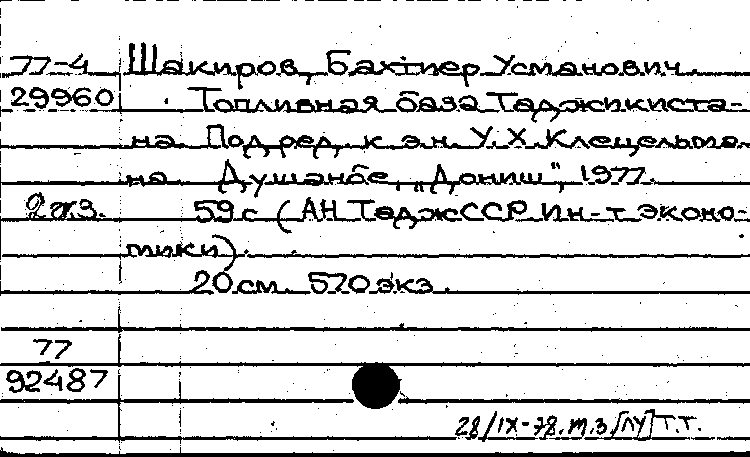 77-4 Шакиров, Бахтиер Усманович.
29960 Топливная база Таджикиста-
на. Под ред. к. э. н. У. Х. Клецельма-
на. Душанбе, „Дониш“, 1977.
2 экз. 59 с (АН ТаджССР. Ин-т эконо-
мики).
20 см. 570 экз.
77
92487
28/IX-78. т.з. [ЛУ] Т.Т.